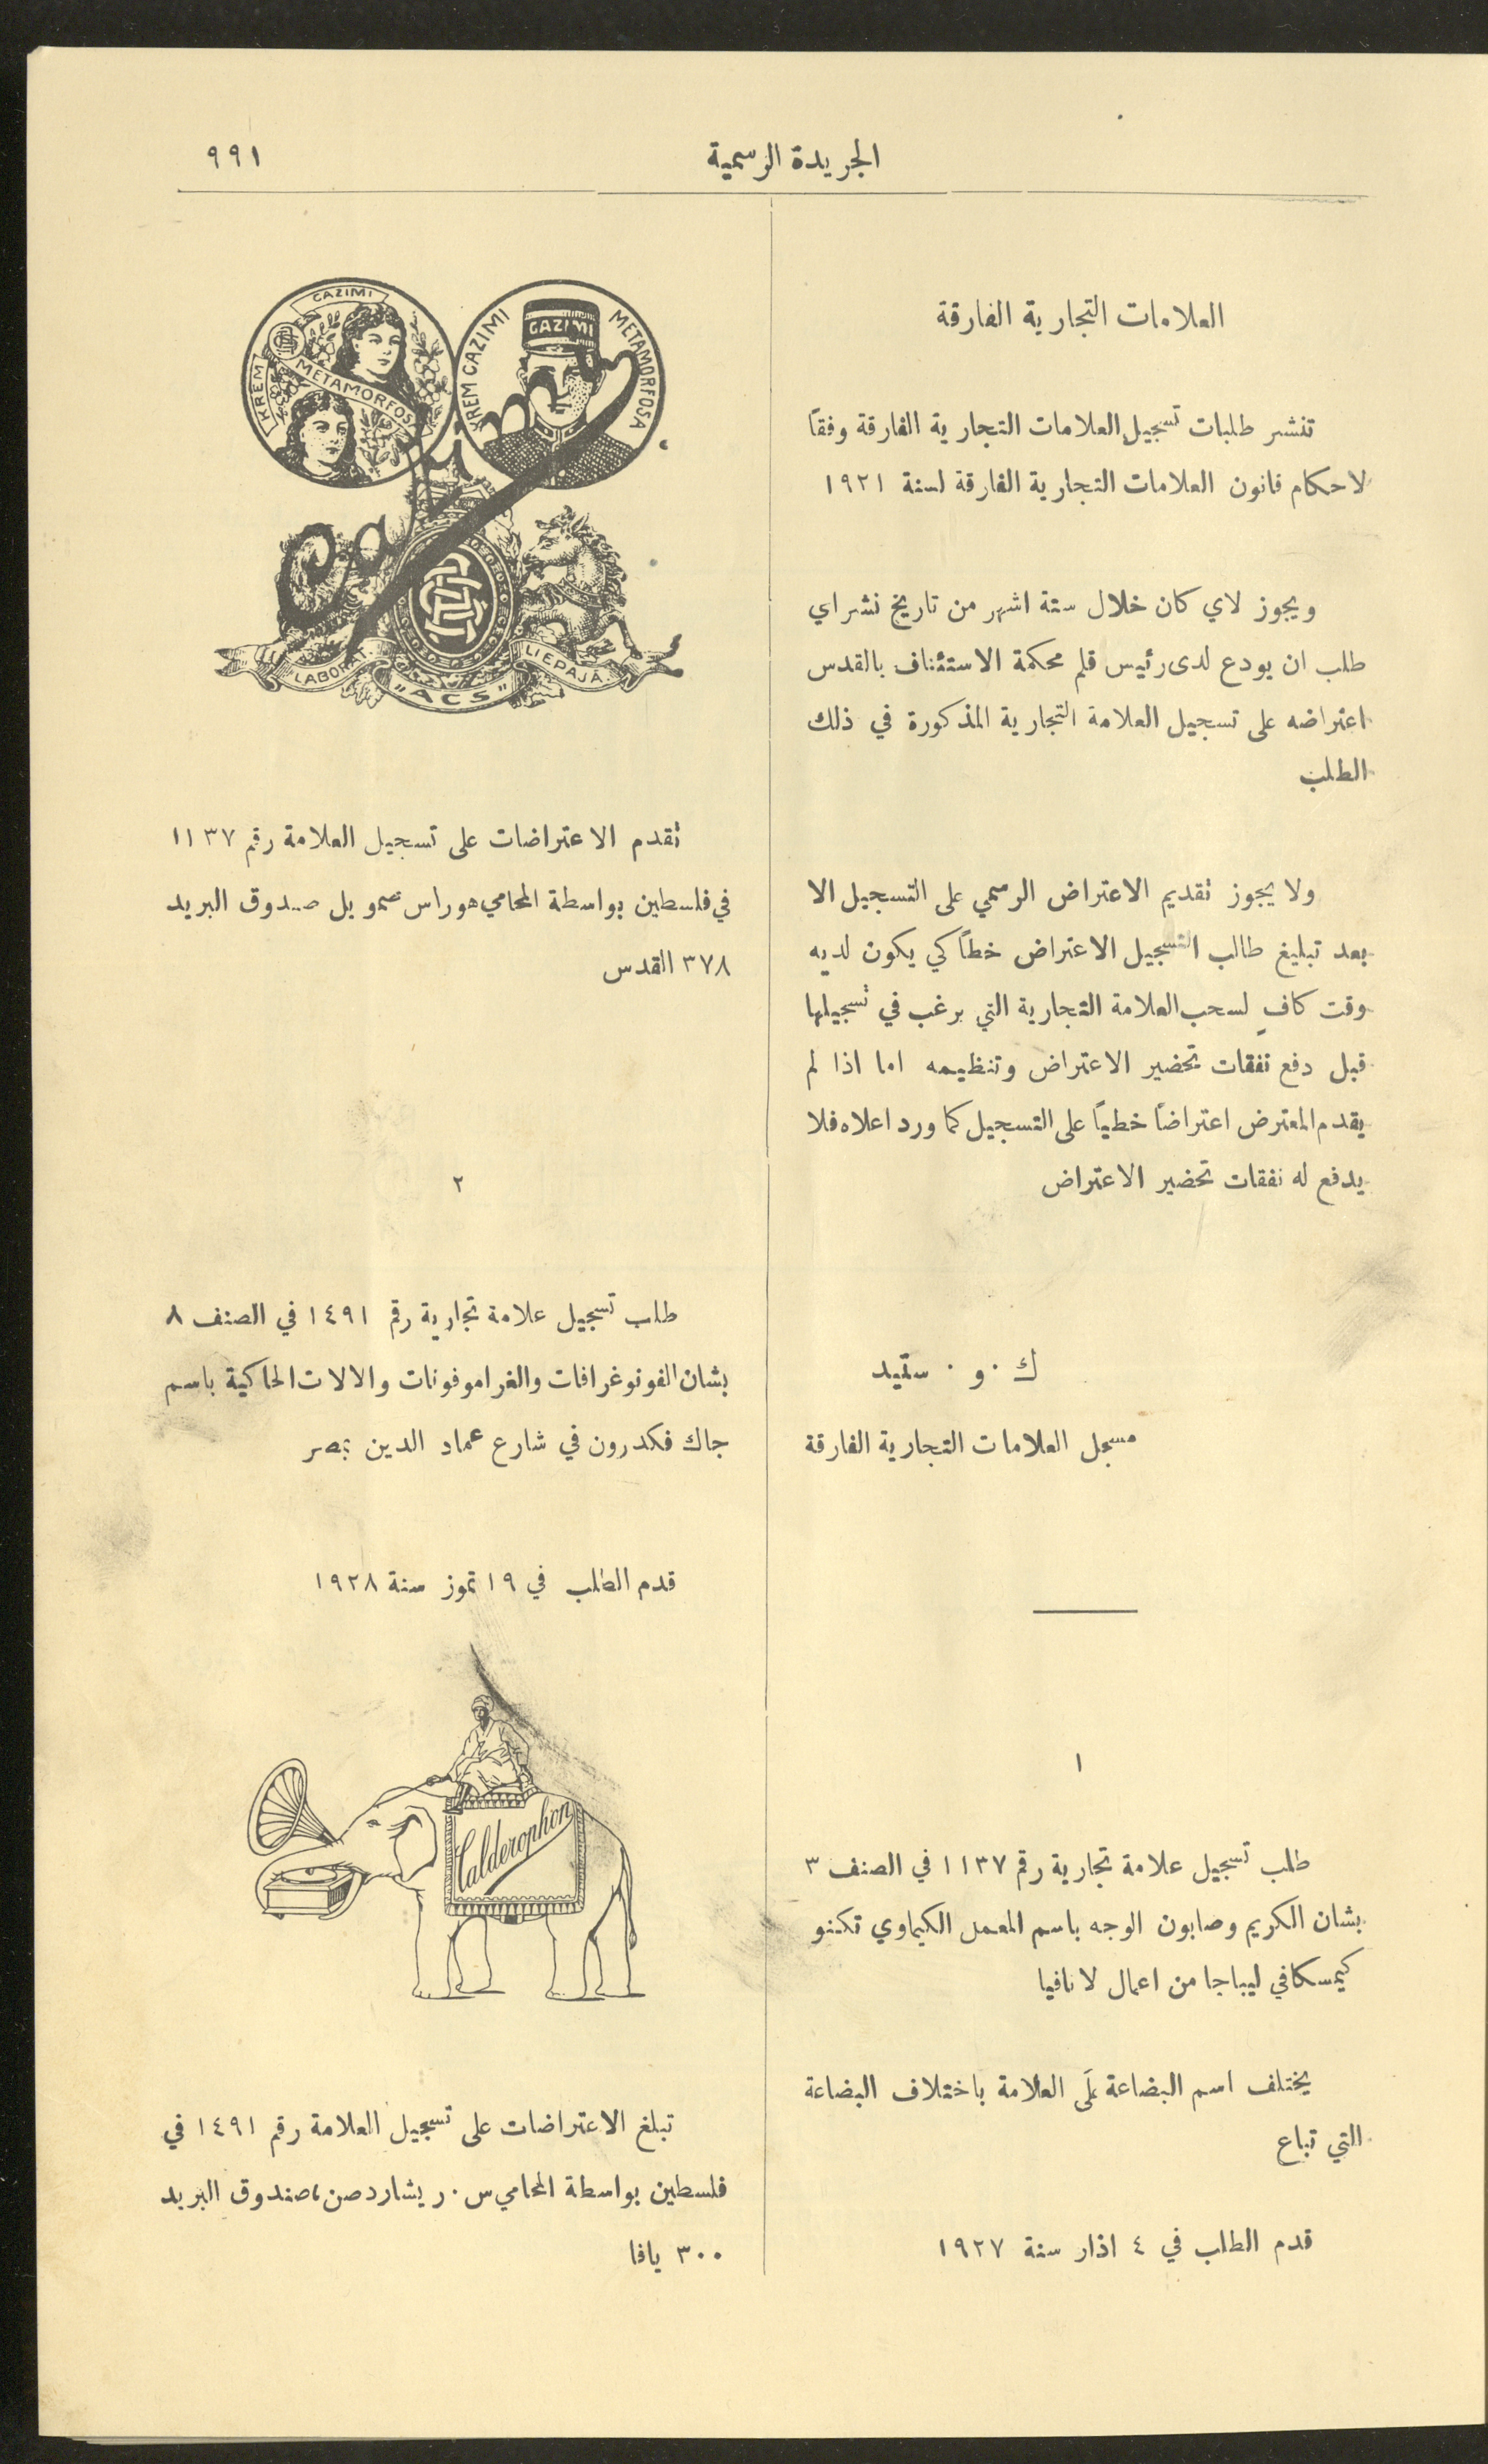 الجريدة الرسمية
٩٩١
العلامات التجارية الفارقة
تنشر طلبات تسجيل العلامات التجارية الفارقة وفقاً
لاحكام قانون العلامات التجارية الفارقة لسنة ١٩٢١
ويجوز لاي كان خلال ستة اشهر من تاريخ نشر اي
طلب ان يودع لدى رئيس قلم محكمة الاستئناف بالقدس
اعتراضه على تسجيل العلامة التجارية المذكورة في ذلك
الطلب
ولا يجوز تقديم الاعتراض الرسمي على التسجيل الا
بعد تبليغ طالب التسجيل الاعتراض خطاً كي يكون لديه
وقت كافٍ لسحب العلامة التجارية التي يرغب في تسجيلها
قبل دفع نفقات تحضير الاعتراض وتنظيمه اما اذا لم
يقدم المعترض اعتراضاً خطياً على التسجيل كما ورد اعلاه فلا
يدفع له نفقات تحضير الاعتراض
ك . و . ستيد
مسجل العلامات التجارية الفارقة
١
طلب تسجيل علامة تجارية رقم ١١٣٧ في الصنف ٣
بشان الكريم وصابون الوجه باسم المعمل الكيماوي تكنو
كيمسكا في ليباجا من اعمال لاتافيا
يختلف اسم البضاعة على العلامة باختلاف البضاعة
التي تباع
قدم الطلب في ٤ اذار سنة ١٩٢٧
CAZIMI
KREM
METAMORFOSA
KREM CAZIMI METAMORFOSA
GAZIMI
Cazimi
LABORAT. "ACS" LIEPAJĀ
تقدم الاعتراضات على تسجيل العلامة رقم ١١٣٧
في فلسطين بواسطة المحامي هوراس صمويل صندوق البريد
٣٧٨ القدس
٢
طلب تسجيل علامة تجارية رقم ١٤٩١ في الصنف ٨
بشان الفونوغرافات والغراموفونات والالات الحاكية باسم
جاك فكدرون في شارع عماد الدين بمصر
قدم الطلب في ١٩ تموز سنة ١٩٢٨
Calderophon
تبلغ الاعتراضات على تسجيل العلامة رقم ١٤٩١ في
فلسطين بواسطة المحامي س . ريشاردصن، صندوق البريد
٣٠٠ يافا